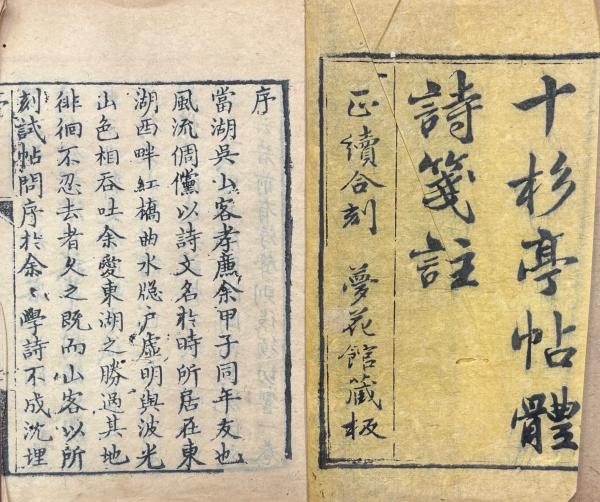 十杉亭帖體
詩箋註
正續合刻 夢花館藏板
序
當湖吳山客孝廉余甲子同年友也
風流倜儻以詩文名於時所居在東
湖西畔紅橋曲水隱戶虛明與波光
山色相吞吐余愛東湖之勝過其地
徘徊不忍去者久之既而山客以所
刻試帖問序於余〻學詩不成沈埋